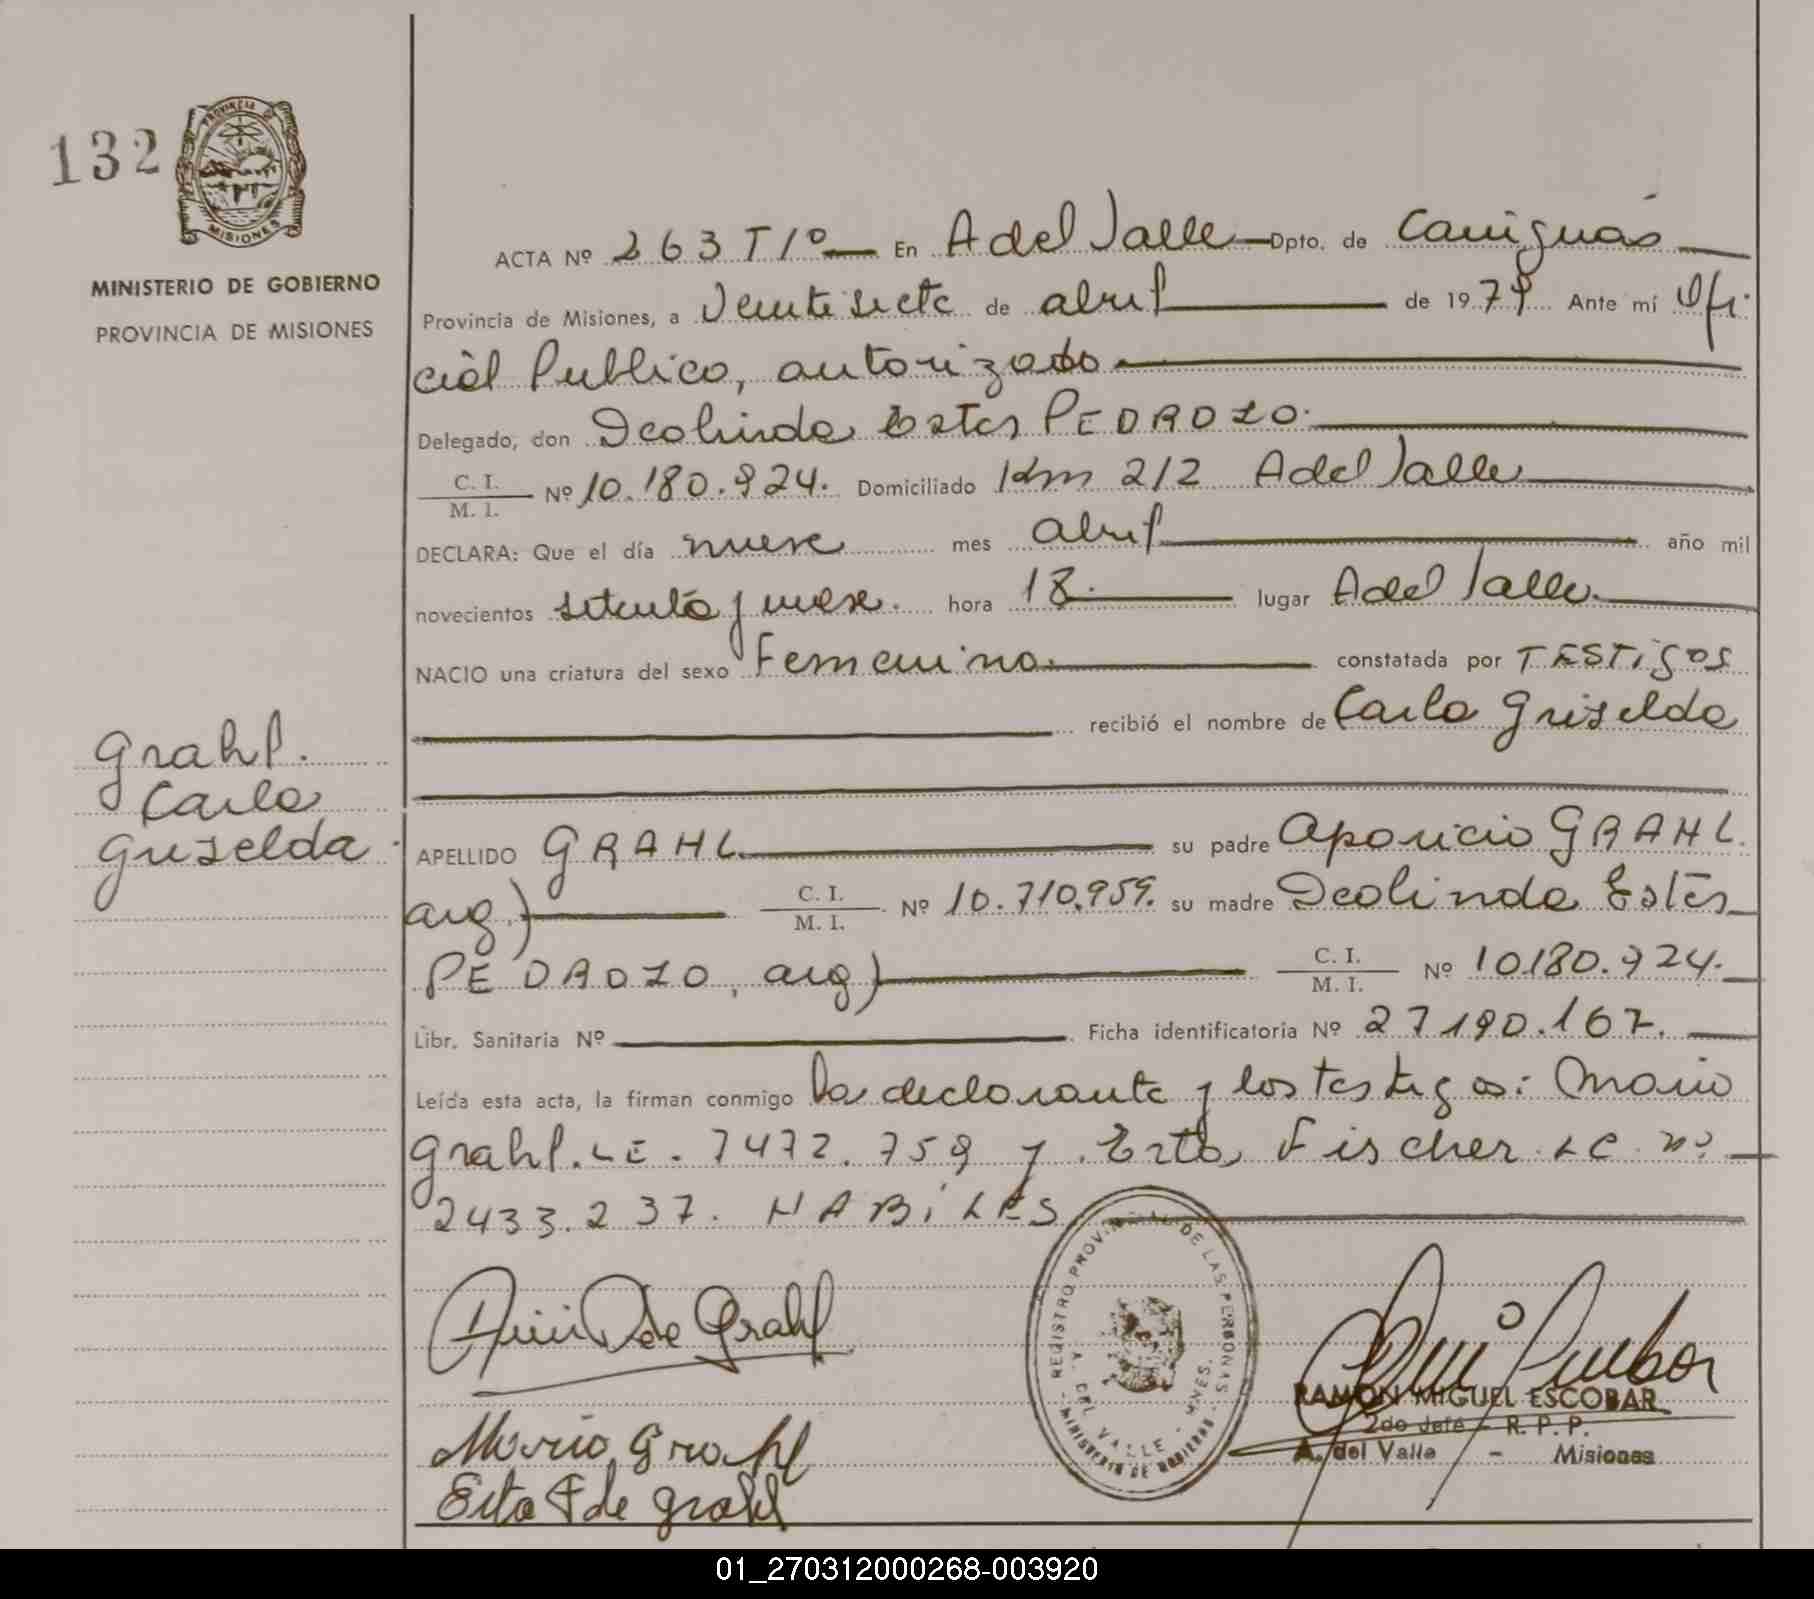 132
PROVINCIA DE
MISIONES
MINISTERIO DE GOBIERNO
PROVINCIA DE MISIONES
ACTA Nº 263 T1º En A del Valle Dpto. de Cainguás
Provincia de Misiones, a Veintisiete de abril de 1979 Ante mí Ofi-
cial Publico, autorizado
Delegado, don Deolinda Ester PEDROZO.
C. I.
M. I. Nº 10.180.924. Domiciliado Km 212 A del Valle
DECLARA: Que el día nueve mes abril año mil
novecientos setenta y nueve. hora 18. lugar A del Valle.
NACIO una criatura del sexo Femenino. constatada por TESTIGOS
recibió el nombre de Carla Griselda
Grahl.
Carla
Griselda
APELLIDO GRAHL su padre Aparicio GRAHL.
arg.) C. I.
M. I. Nº 10.710.959. su madre Deolinda Ester
PEDROZO, arg) C. I.
M. I. Nº 10180.924.
Libr. Sanitaria Nº Ficha identificatoria Nº 27190.167.
Leída esta acta, la firman conmigo la declarante y los testigos: Mario
Grahl. LE. 7472.759 y Erta Fischer LC. nº
2433.237. HABiLES
de Grahl
Mario Grahl
Erta F de grahl
REGISTRO PROVINCIAL DE LAS PERSONAS
A. DEL VALLE - MNES.
MINISTERIO DE GOBIERNO
RAMON MIGUEL ESCOBAR
2do Jefe - R. P. P.
A. del Valle - Misiones
01_270312000268-003920